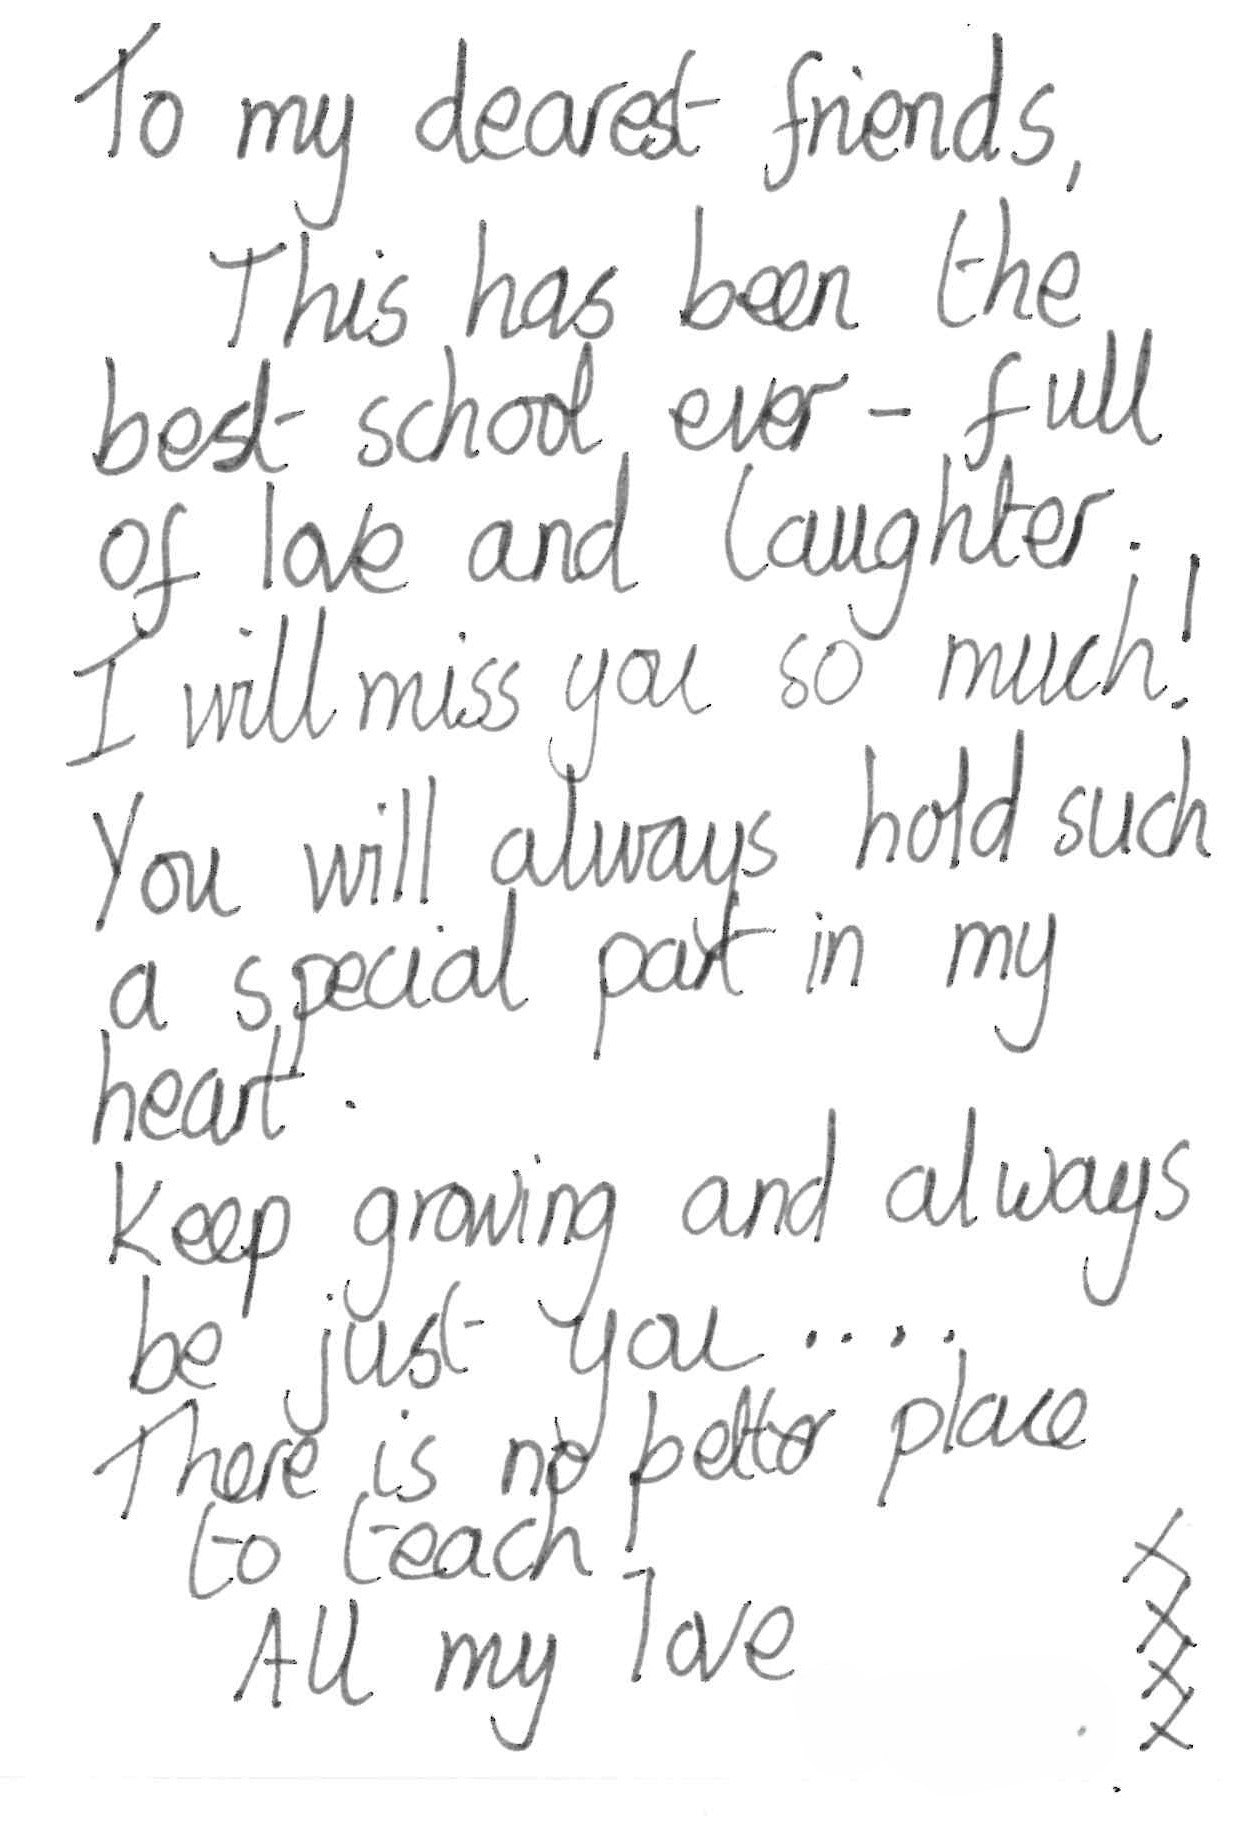 To my dearest friends,
This has been the
best school ever - full
of love and laughter.
I will miss you so much!
You will always hold such
a special part in my
heart.
Keep growing and always
be just you....
There is no better place
to teach!
All my love
x
x
x
x